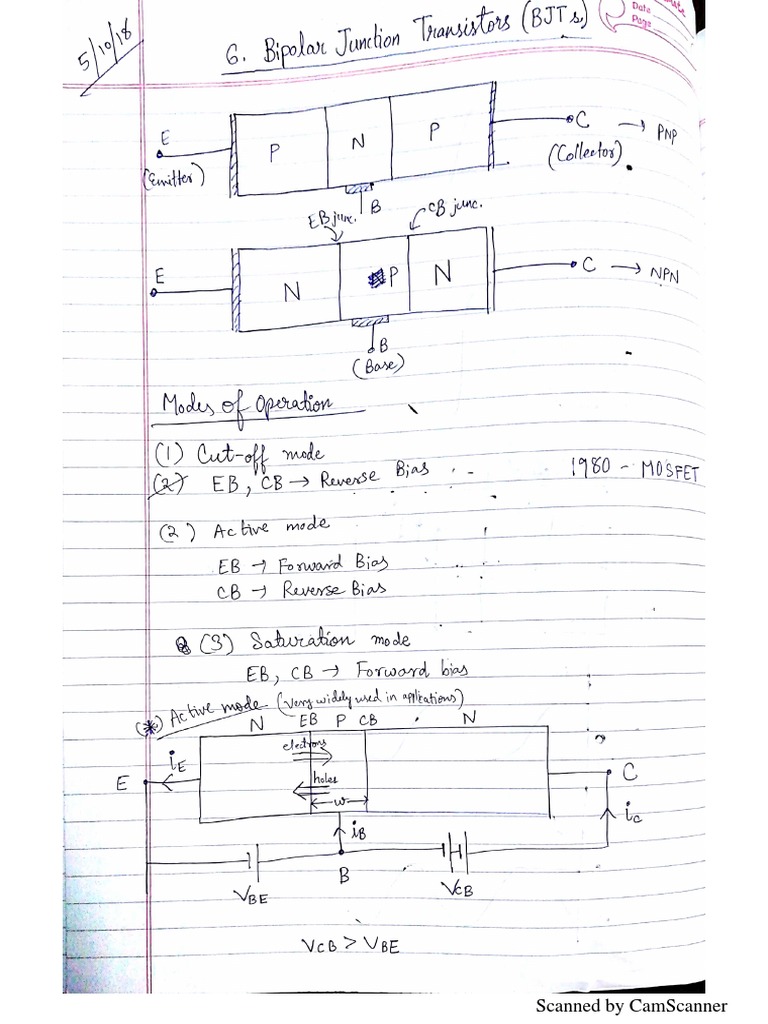 Date
Page
5/10/18
6. Bipolar Junction Transistors (BJTs)
E
(Emitter)
P
N
P
C
(Collector)
→ PNP
B
EB junc.
CB junc.
E
N
P
N
C
→ NPN
B
(Base)
Modes of Operation
(1) Cut-off mode
(2) EB, CB → Reverse Bias
1980 - MOSFET
(2) Active mode
EB → Forward Bias
CB → Reverse Bias
(3) Saturation mode
EB, CB → Forward bias
(*) Active mode (Very widely used in applications)
N EB P CB N
electrons
holes
w
E
iE
C
iC
iB
B
VBE
VCB
VCB > VBE
Scanned by CamScanner